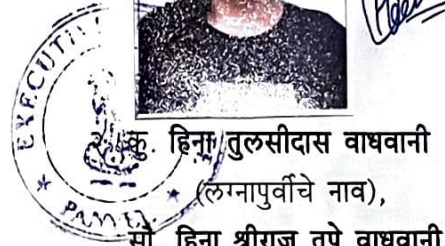 EXECUTI
PANVEL
२. कु. हिना तुलसीदास वाधवानी
(लग्नापुर्वीचे नाव),
सौ. हिना श्रीराज तुपे वाधवानी